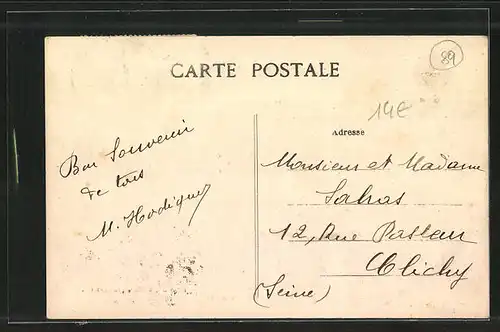 89
CARTE POSTALE
14€
Adresse
Bon Souvenir
de tous
M. Hodique
Monsieur et Madame
12, Rue
Clichy
(Seine)